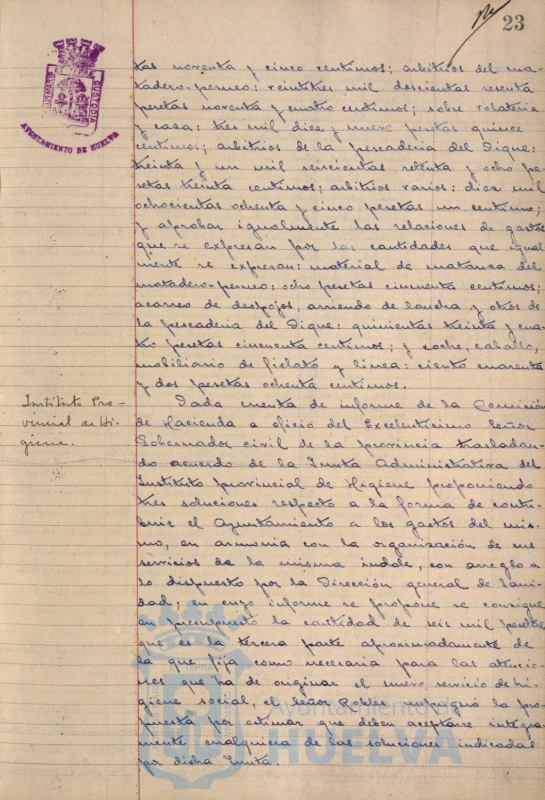 23
tas noventa y cinco centimos; arbitrios del ma-
tadero-permeo: veintitres mil doscientas sesenta
pesetas noventa y cuatro centimos; sobre volateria
y casa: tres mil diez y nueve pesetas quince
centimos; arbitrios de la pescaderia del Dique:
treinta y un mil seiscientas setenta y ocho pe-
setas treinta centimos; arbitrios varios: diez mil
ochocientas ochenta y cinco pesetas un centimo;
y aprobar igualmente las relaciones de gastos
que se expresan por las cantidades que igual
mente se expresan: material de matanza del
matadero-permeo: ocho pesetas cincuenta centimos;
acarreo de despojos, arriendo de lancha y otros de
la pescaderia del Dique: quinientas treinta y cua-
tro pesetas cincuenta centimos; y coche, caballo,
mobiliario de fielato y linea: ciento cuarenta
y dos pesetas ochenta centimos.
Instituto Pro-
vincial de Hi-
giene.
Dada cuenta de informe de la Comisión
de Hacienda a oficio del Excelentisimo Señor
Gobernador civil de la provincia trasladan-
do acuerdo de la Junta Administrativa del
Instituto provincial de Higiene proponiendo
tres soluciones respecto a la forma de contri-
buir el Ayuntamiento a los gastos del mis-
mo, en armonia con la organización de sus
servicios de la misma indole, con arreglo a
lo dispuesto por la Dirección general de Sani-
dad; en cuyo informe se propone se consigne
en presupuesto la cantidad de seis mil pesetas
que es la tercera parte aproximadamente de
la que fija como necesaria para las atencio-
nes que ha de originar el nuevo servicio de hi-
giene social, el Señor Robles impugnó la pro-
puesta por estimar que deben aceptarse integra-
mente cualquiera de las soluciones indicadas
por dicha Junta.
CUSTODIA
AYUNTAMIENTO DE HUELVA
Ayuntamiento de
HUELVA